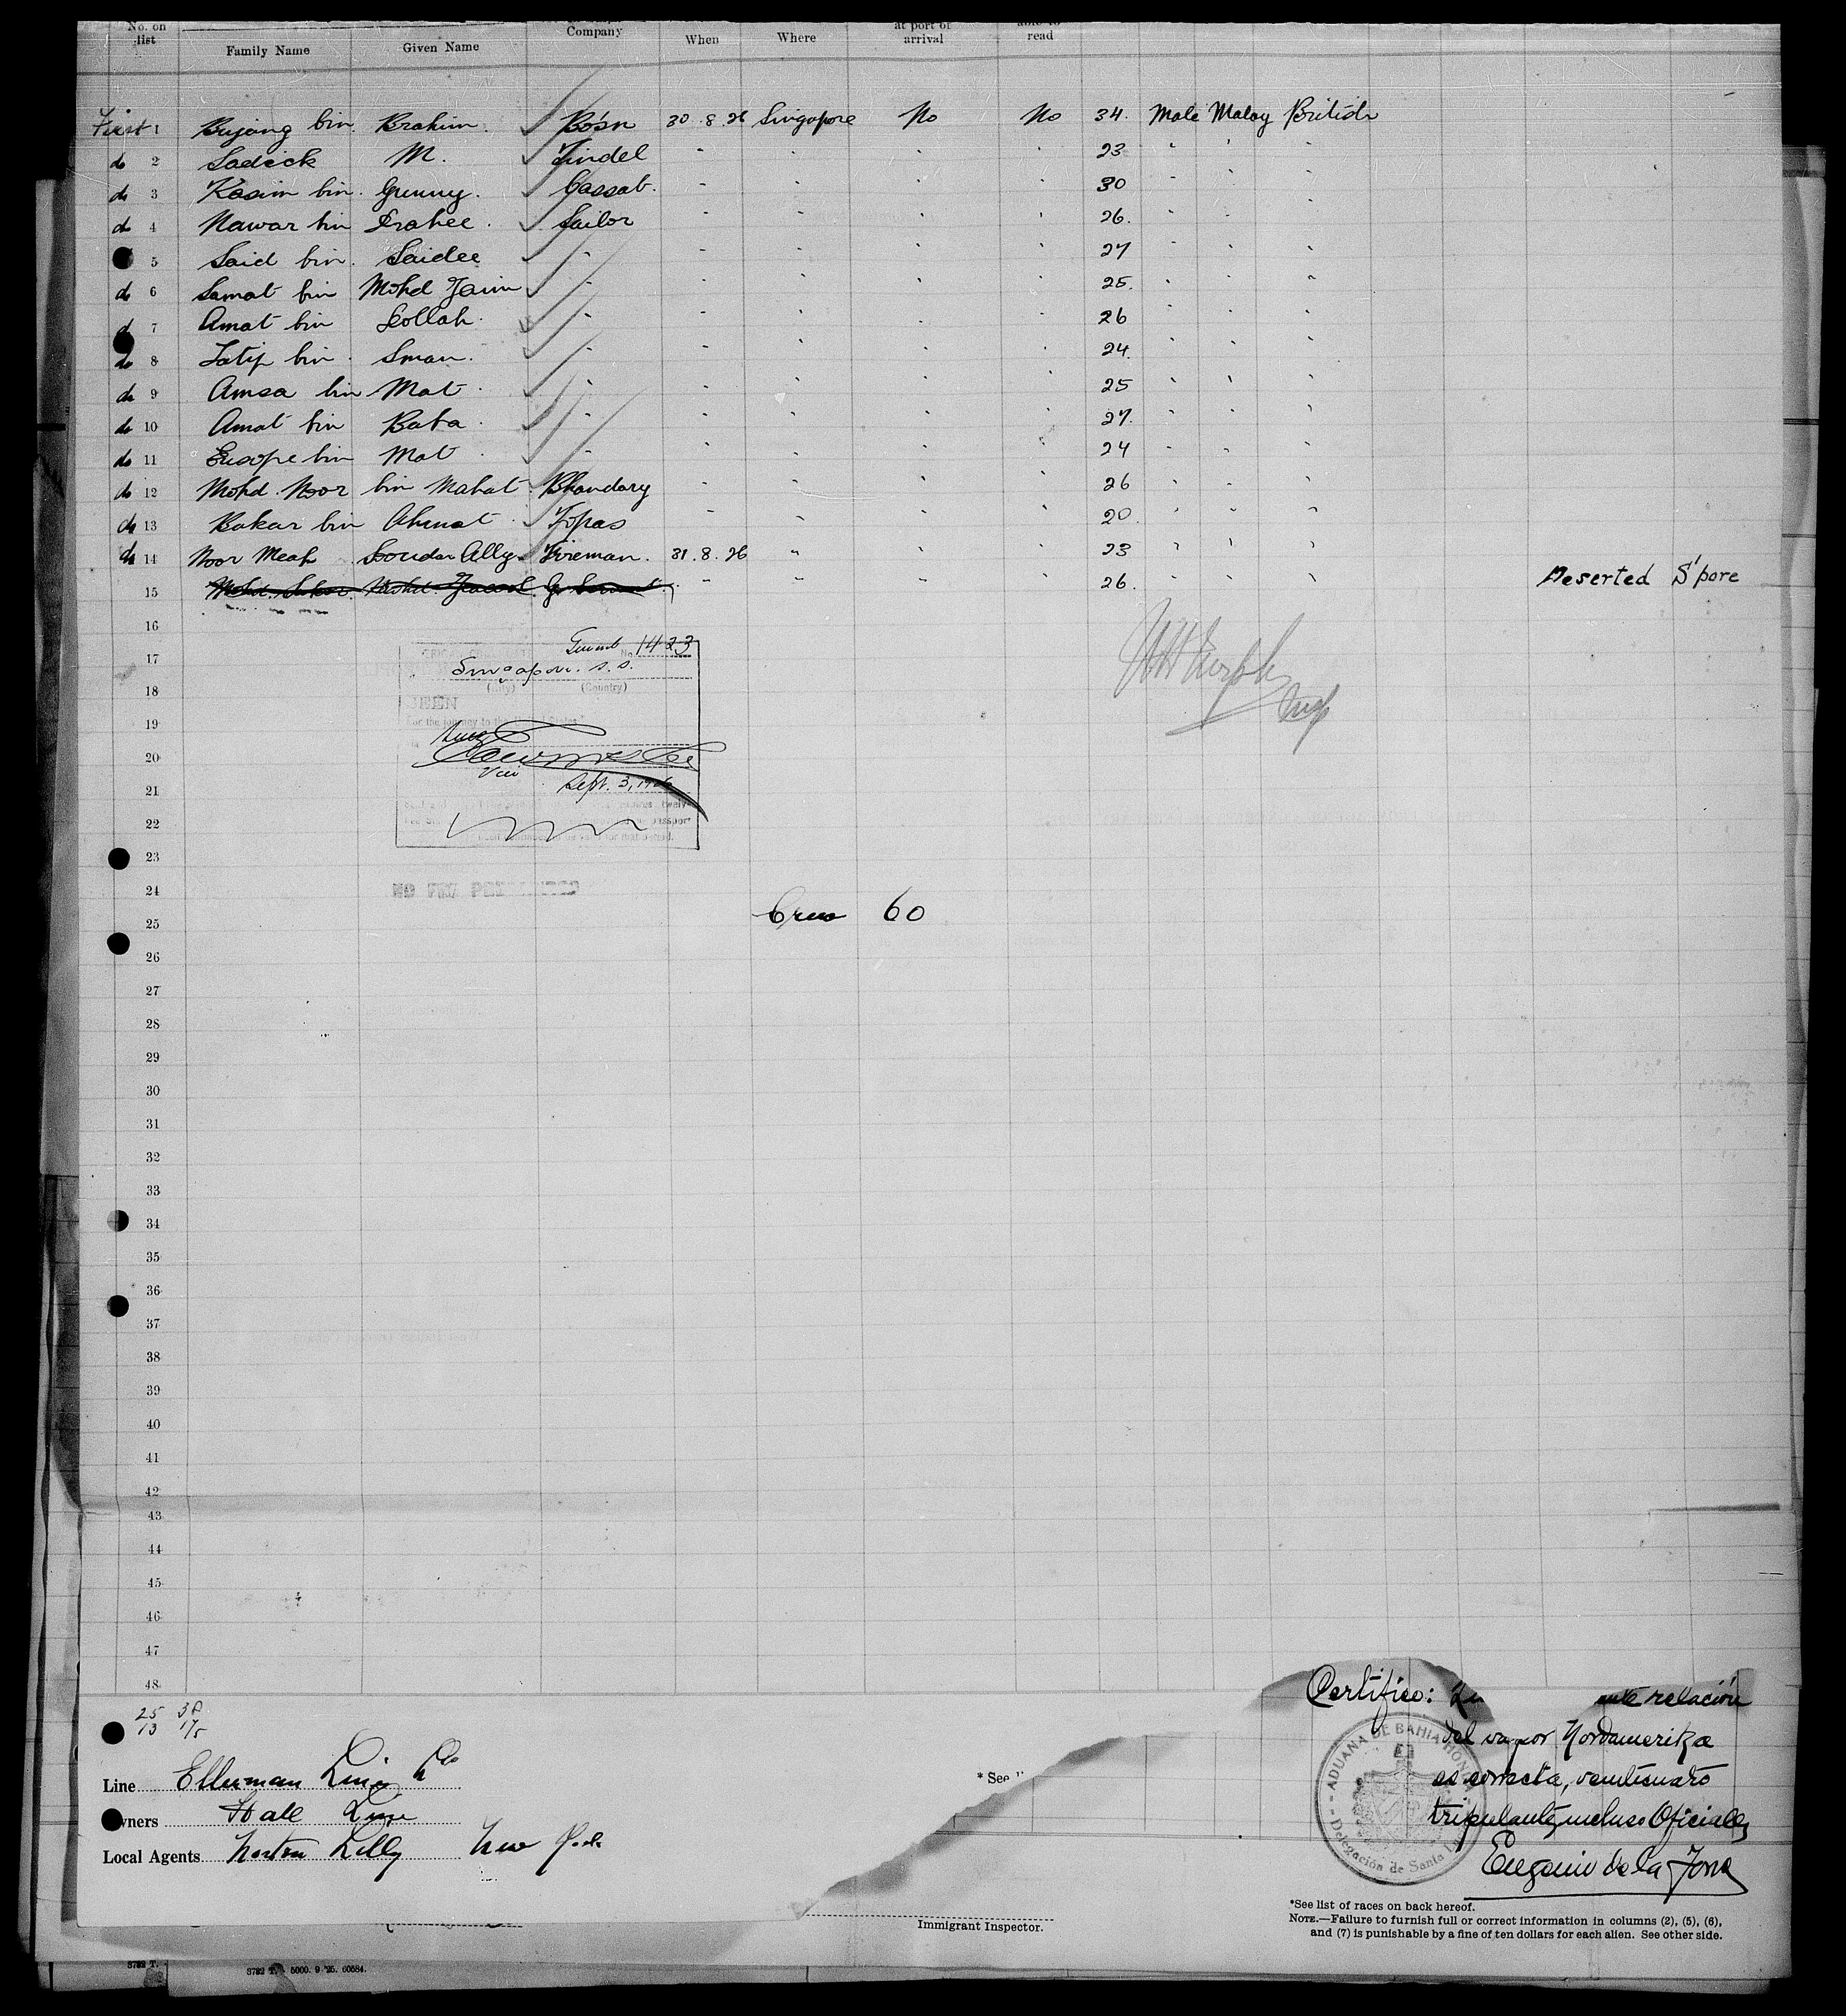 No. on list Family Name Given Name Company When Where at port of arrival able to read
First 1 Bujang bin Brahim. Bo'sn 30.8.26 Singapore No No 34. Male Malay British
do 2 Sadick M. Tindel " " " " 23 " " "
do 3 Kasim bin Gunny. Cassab. " " " " 30 " " "
do 4 Nawar bin Sailor " " " " 26. " " "
5 Said bin Saidee " " " " " 27 " " "
do 6 Samat bin Mohd " " " " " 25. " " "
do 7 Amat bin " " " " " 26 " " "
do 8 bin Sman. " " " " " 24. " " "
do 9 Amsa bin Mat " " " " " 25 " " "
do 10 Amat bin Baba " " " " " 27. " " "
do 11 Eusope bin Mat " " " " " 24 " " "
do 12 Mohd. Noor bin Mahat. Bhandary " " " " 26 " " "
do 13 Bakar bin Ahmat. Topas " " " " 20. " " "
do 14 Noor Meah Ally. Fireman. 31.8.26 " " " 23 " " "
15 Mohd. Mohd. " " " " 26. " " " Deserted S'pore
16
No. 1423
17
Singapore. S.S.
(City) (Country)
18
SEEN
19
For the journey to the States
20
Vice
Sept. 3, 1926
21
22
23
24
NO FEE
Crew 60
25
26
27
28
29
30
31
32
33
34
35
36
37
38
39
40
41
42
43
44
45
46
47
48
25
13
Line Ellerman Line
Owners Hall Line
Local Agents Norton Lilly New York
* See
Immigrant Inspector.
Certifico: relación
del vapor Nordamerika
es correcta, veinticuatro
tripulantes incluso Oficiales
Eugenio de la Torre
ADUANA DE BAHIA HONDA
Delegación de Santa
*See list of races on back hereof.
NOTE.—Failure to furnish full or correct information in columns (2), (5), (6),
and (7) is punishable by a fine of ten dollars for each alien. See other side.
3782 T. 5000. 9 '25. 60584.